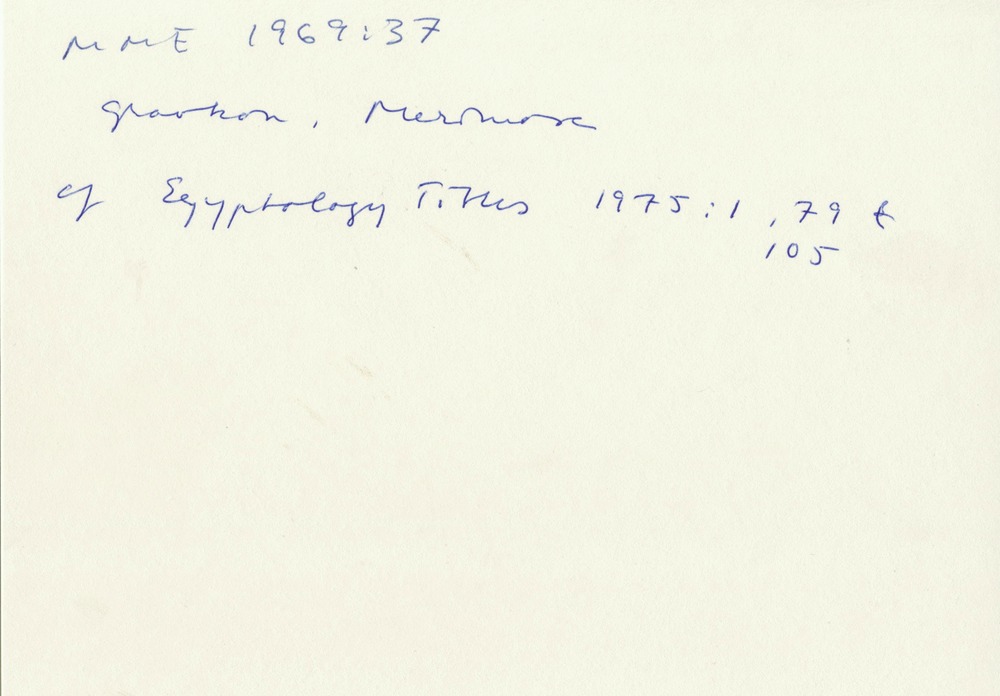 MME 1969:37
gravkon, Merimose
cf Egyptology Titles 1975:1, 79 &
105